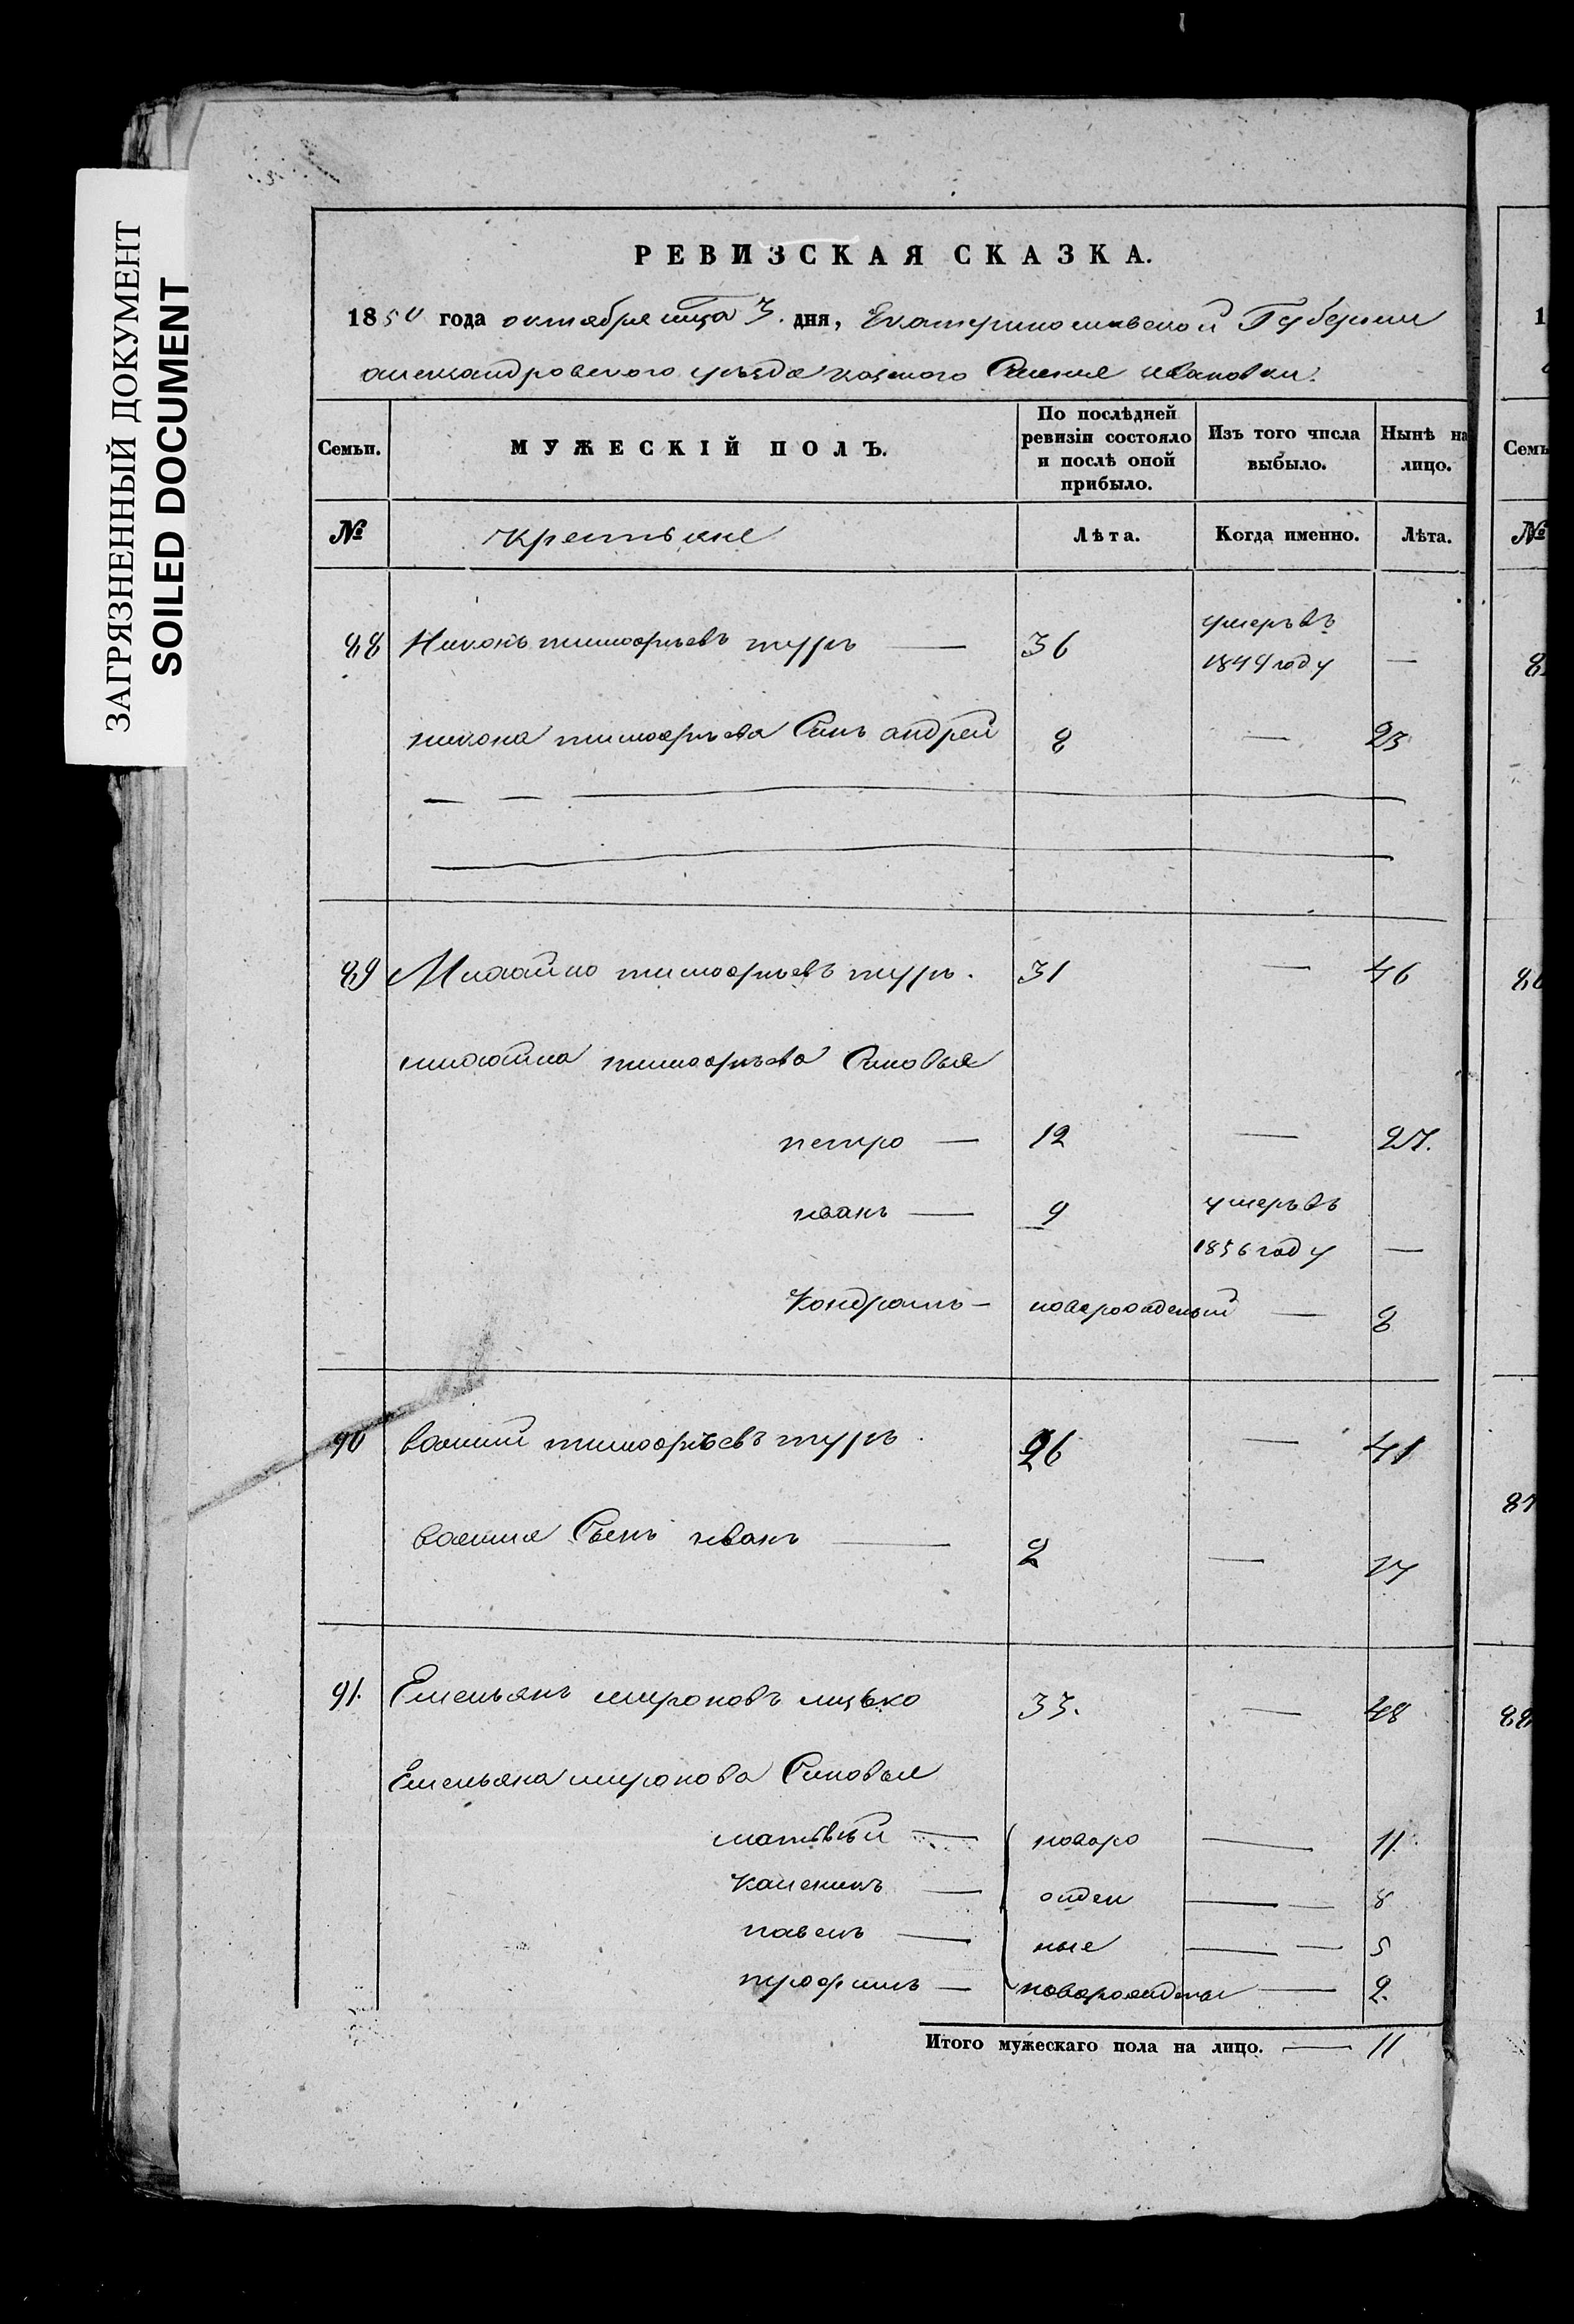 ЗАГРЯЗНЕННЫЙ ДОКУМЕНТ
SOILED DOCUMENT
РЕВИЗСКАЯ СКАЗКА.
1850 года октября мца 3. дня, Екатеринославской Губернии
александровского уезда казеного Селения ивановки.
Семьи. МУЖЕСКІЙ ПОЛЪ. По послѣдней ревизіи состояло и послѣ оной прибыло. Изъ того числа выбыло. Нынѣ на лицо.
№ крестьяне Лѣта. Когда именно. Лѣта.
88 Никонъ тимофѣевъ туръ — 36 умеръ въ
1849 году —
никона тимофѣева Синъ андрей 8 — 23
89 Михайло тимофѣевъ туръ. 31 — 46
михайла тимофѣева Синовья
петро — 12 — 27.
иванъ — 9 умеръ въ
1836 году —
Кондратъ — новорожденый — 8
90 василий тимофѣевъ туръ. 26 — 41
василия Сынъ иванъ — 2 — 17
91. Емельянъ мироновъ 33. — 48
Емельяна миронова Синовья
матвѣй — новоро — 11
Каленикъ — жден — 8
павелъ — ные — 5
трофимъ — новорожденые — 2.
Итого мужескаго пола на лицо. — 11
1
Семь
№
8
86
87
88